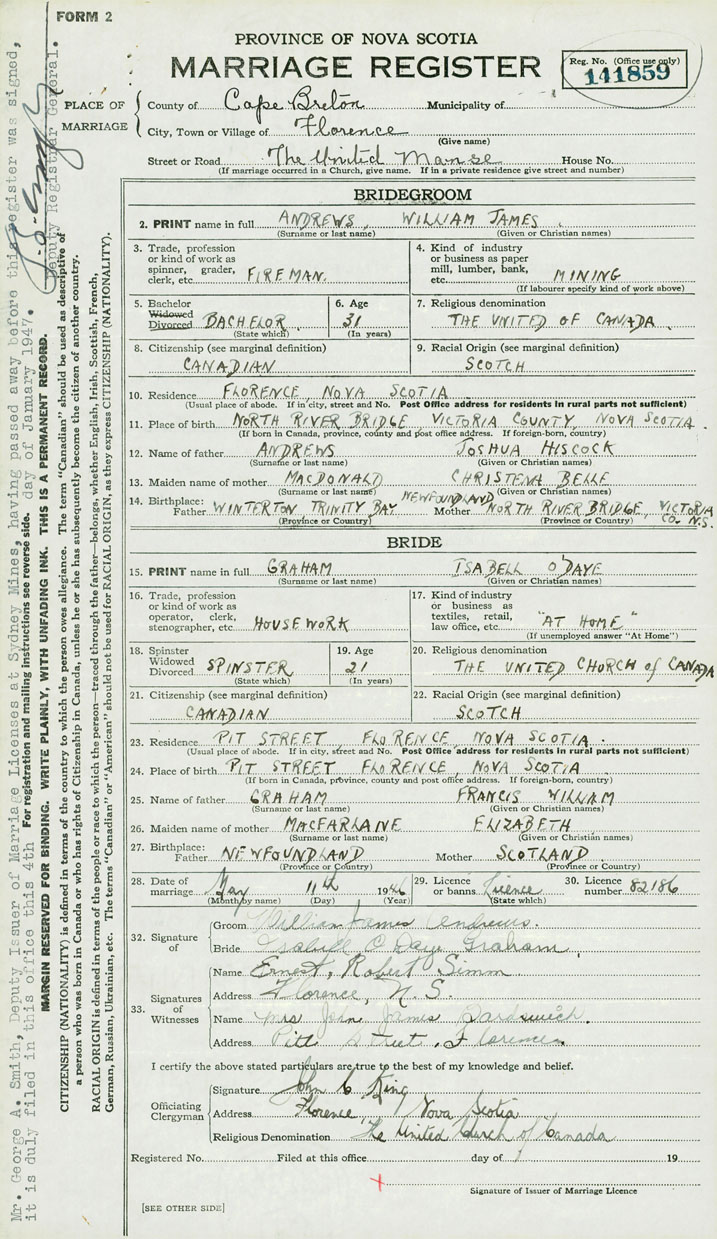 FORM 2
PROVINCE OF NOVA SCOTIA
MARRIAGE REGISTER
Reg. No. (Office use only)
141859
PLACE OF MARRIAGE
County of Cape Breton Municipality of
City, Town or Village of Florence
(Give name)
Street or Road The United Manse House No.
(If marriage occurred in a Church, give name. If in a private residence give street and number)
BRIDEGROOM
2. PRINT name in full ANDREWS WILLIAM JAMES
(Surname or last name) (Given or Christian names)
3. Trade, profession or kind of work as spinner, grader, clerk, etc. FIREMAN.
4. Kind of industry or business as paper mill, lumber, bank, etc. MINING
(If labourer specify kind of work above)
5. Bachelor Widowed Divorced BACHELOR
(State which)
6. Age 31
(In years)
7. Religious denomination
THE UNITED OF CANADA
8. Citizenship (see marginal definition)
CANADIAN
9. Racial Origin (see marginal definition)
SCOTCH
10. Residence FLORENCE, NOVA SCOTIA
(Usual place of abode. If in city, street and No. Post Office address for residents in rural parts not sufficient)
11. Place of birth NORTH RIVER BRIDGE, VICTORIA COUNTY, NOVA SCOTIA.
(If born in Canada, province, county and post office address. If foreign-born, country)
12. Name of father ANDREWS JOSHUA HISCOCK
(Surname or last name) (Given or Christian names)
13. Maiden name of mother MACDONALD CHRISTENA BELLE
(Surname or last name) (Given or Christian names)
14. Birthplace: Father WINTERTON TRINITY BAY NEWFOUNDLAND Mother NORTH RIVER BRIDGE, VICTORIA CO. N.S.
(Province or Country) (Province or Country)
BRIDE
15. PRINT name in full GRAHAM ISABELL O'DAYE
(Surname or last name) (Given or Christian names)
16. Trade, profession or kind of work as operator, clerk, stenographer, etc. HOUSEWORK
17. Kind of industry or business as textiles, retail, law office, etc. "AT HOME"
(If unemployed answer "At Home")
18. Spinster Widowed Divorced SPINSTER
(State which)
19. Age 21
(In years)
20. Religious denomination
THE UNITED CHURCH of CANADA
21. Citizenship (see marginal definition)
CANADIAN
22. Racial Origin (see marginal definition)
SCOTCH
23. Residence PIT STREET, FLORENCE, NOVA SCOTIA.
(Usual place of abode. If in city, street and No. Post Office address for residents in rural parts not sufficient)
24. Place of birth PIT STREET FLORENCE NOVA SCOTIA
(If born in Canada, province, county and post office address. If foreign-born, country)
25. Name of father GRAHAM FRANCIS WILLIAM
(Surname or last name) (Given or Christian names)
26. Maiden name of mother MACFARLAINE ELIZABETH
(Surname or last name) (Given or Christian names)
27. Birthplace: Father NEWFOUNDLAND Mother SCOTLAND
(Province or Country) (Province or Country)
28. Date of marriage May 11th 1946
(Month by name) (Day) (Year)
29. Licence or banns Licence
(State which)
30. Licence number 82186
32. Signature of
Groom William James Andrews.
Bride Isabell O'Daye Graham
33. Signatures of Witnesses
Name Ernest, Robert Simm
Address Florence, N.S.
Name Mrs John James
Address Pitt street, Florence
I certify the above stated particulars are true to the best of my knowledge and belief.
Officiating Clergyman
Signature John C King
Address Florence, Nova Scotia
Religious Denomination The United Church of Canada
Registered No. Filed at this office day of 19
Signature of Issuer of Marriage Licence
[SEE OTHER SIDE]
Mr. George A. Smith, Deputy Issuer of Marriage Licenses at Sydney Mines, having passed away before this register was signed,
it is duly filed in this office this 4th day of January 1947.
Deputy Registrar General.
For registration and mailing instructions see reverse side.
MARGIN RESERVED FOR BINDING. WRITE PLAINLY, WITH UNFADING INK. THIS IS A PERMANENT RECORD.
CITIZENSHIP (NATIONALITY) is defined in terms of the country to which the person owes allegiance. The term "Canadian" should be used as descriptive of
a person who was born in Canada or who has rights of Citizenship in Canada, unless he or she has subsequently become the citizen of another country.
RACIAL ORIGIN is defined in terms of the people or race to which the person—traced through the father—belongs, whether English, Irish, Scottish, French,
German, Russian, Ukrainian, etc. The terms "Canadian" or "American" should not be used for RACIAL ORIGIN, as they express CITIZENSHIP (NATIONALITY).